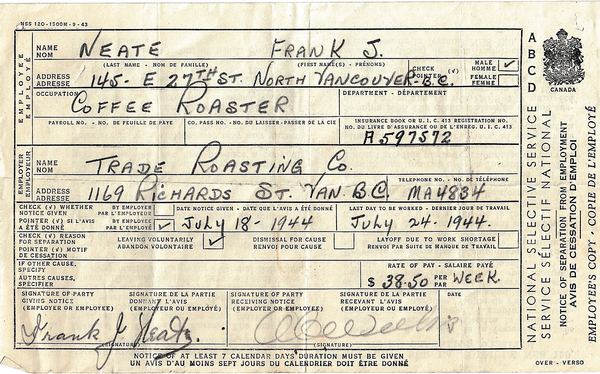 NSS 120-1500M-9-43
NAME NEATE FRANK J.
NOM (LAST NAME - NOM DE FAMILLE) (FIRST NAME(S) - PRÉNOMS) CHECK (√) MALE HOMME √
ADDRESS 145- E 27TH ST. NORTH VANCOUVER-B.C. POINTER (√) FEMALE FEMME
ADRESSE
OCCUPATION DEPARTMENT - DÉPARTEMENT
COFFEE ROASTER
PAYROLL NO. - NO. DE FEUILLE DE PAYE CO. PASS NO. - NO. DU LAISSER-PASSER DE LA CIE INSURANCE BOOK OR U.I.C. 413 REGISTRN NO.
NO. DU LIVRE D'ASSURANCE OU DE L'ENREG. U.I.C. 413
A597572
EMPLOYEE EMPLOYÉ
NAME TRADE ROASTING CO.
NOM
TELEPHONE NO. - NO. DE TÉLÉPHONE
ADDRESS 1169 RICHARDS ST. VAN. B.C. MA4834
ADRESSE
EMPLOYER EMPLOYEUR
CHECK (√) WHETHER NOTICE GIVEN BY EMPLOYER PAR L'EMPLOYEUR DATE NOTICE GIVEN - DATE QUE L'AVIS A ÉTÉ DONNÉ LAST DAY TO BE WORKED - DERNIER JOUR DE TRAVAIL
POINTER (√) SI L'AVIS A ÉTÉ DONNÉ BY EMPLOYEE PAR L'EMPLOYÉ √ JULY 18 - 1944 JULY 24 - 1944.
CHECK (√) REASON FOR SEPARATION LEAVING VOLUNTARILY √ DISMISSAL FOR CAUSE LAYOFF DUE TO WORK SHORTAGE
POINTER (√) MOTIF DE CESSATION ABANDON VOLONTAIRE RENVOI POUR CAUSE RENVOI PAR SUITE DE MANQUE DE TRAVAIL
IF OTHER CAUSE, SPECIFY RATE OF PAY - SALAIRE PAYÉ
AUTRES CAUSES, SPÉCIFIER $ 38.50 PER PAR WEEK.
SIGNATURE OF PARTY GIVING NOTICE (EMPLOYER OR EMPLOYEE) SIGNATURE DE LA PARTIE DONNANT L'AVIS (EMPLOYEUR OU EMPLOYÉ) SIGNATURE OF PARTY RECEIVING NOTICE (EMPLOYER OR EMPLOYEE) SIGNATURE DE LA PARTIE RECEVANT L'AVIS (EMPLOYEUR OU EMPLOYÉ) DATE
Frank J Neate
(SIGNATURE) (SIGNATURE)
NOTICE OF AT LEAST 7 CALENDAR DAYS' DURATION MUST BE GIVEN
UN AVIS D'AU MOINS SEPT JOURS DU CALENDRIER DOIT ÊTRE DONNÉ
OVER - VERSO
A B C D
CANADA
NATIONAL SELECTIVE SERVICE
SERVICE SÉLECTIF NATIONAL
NOTICE OF SEPARATION FROM EMPLOYMENT
AVIS DE CESSATION D'EMPLOI
EMPLOYEE'S COPY - COPIE DE L'EMPLOYÉ